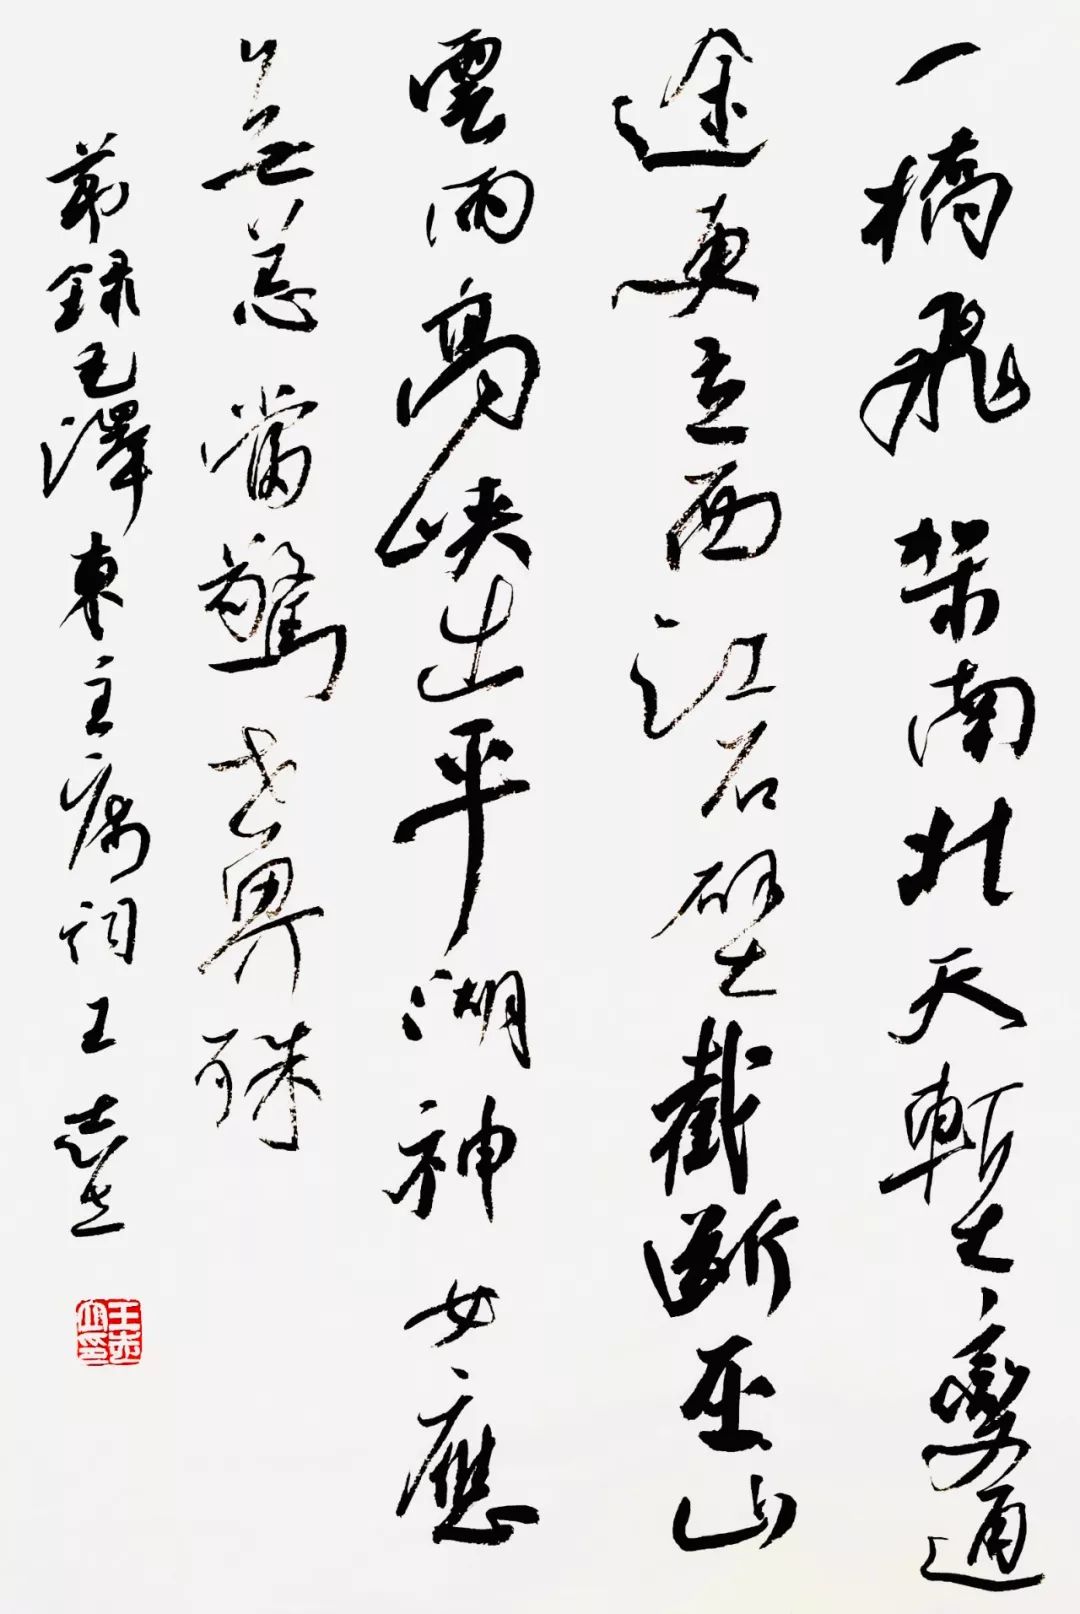 一橋飛架南北天塹變通
途更立西江石壁截斷巫山
雲雨高峽出平湖神女應
無恙當驚世界殊
節錄毛澤東主席詞王志立
王志立印